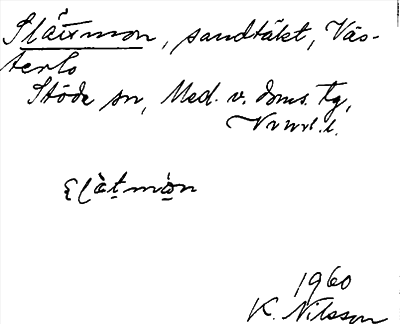 Slåttmon, sandtäkt, Väs-
terlo
Stöde sn, Med. v. doms. tg,
Vrnrl. l.
1960
K. Nilsson